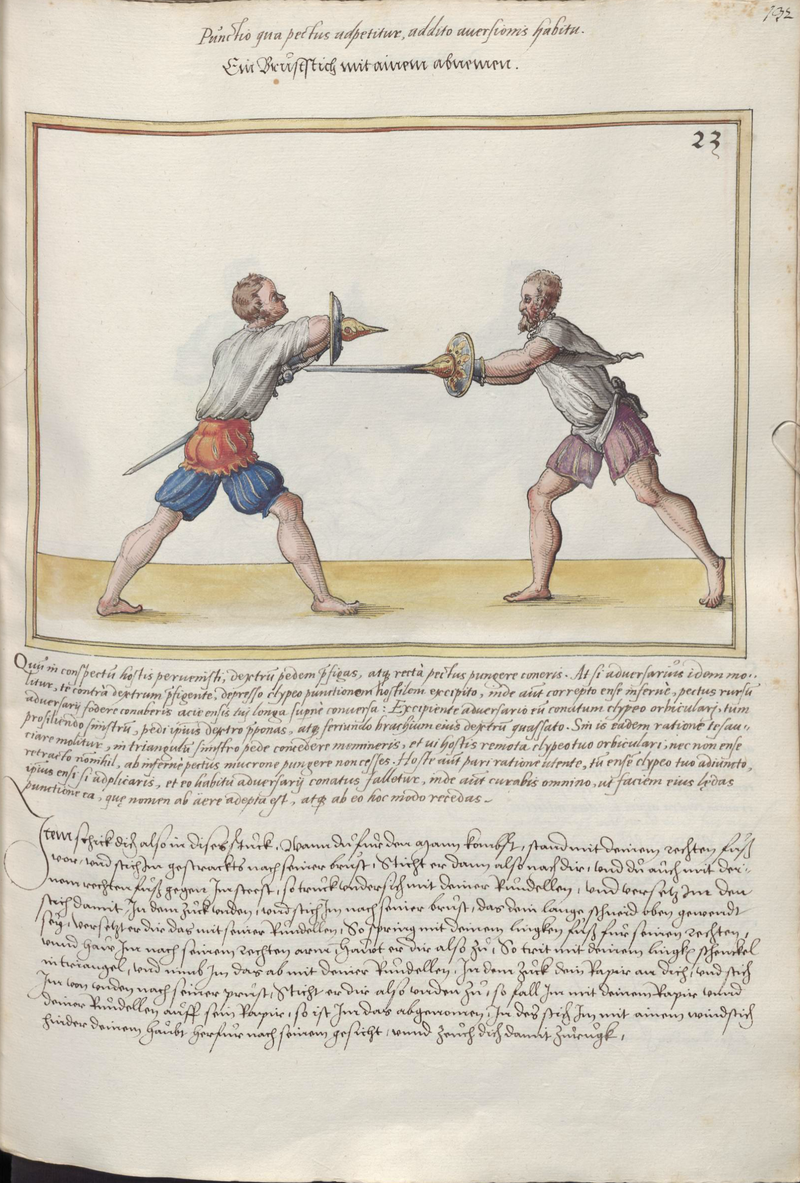 132
Punctio qua pectus adpetitur, addito auersionis habitu.
Ein Bruststich mit ainem abnemen.
23
Quũ in conspectũ hostis perueneris, dextrũ pedem p̃figas, atq recta pectus pungere coneris. At si aduersarius idem mo-
litur, te contra dextrum p̃figente, depresso clypeo punctionem hostilem excipito, inde aũt correpto ense inferne, pectus rursũ
aduersarij fodere conaberis acie ensis tui longa supne conuersa: Excipiente aduersario eũ conatum clypeo orbiculari, tum
prosiliendo sinistrũ, pedi ipius dextro p̃ponas, atq feriundo brachium eius dextrũ quassato. Sin is eadem ratione te sau-
ciare molitur, in triangulũ sinistro pede concedere memineris, et vi hostis remota clypeo tuo orbiculari, nec non ense
retracto nonnihil, ab inferne pectus mucrone pungere non cesses. Hoste aũt pari ratione utente, tu ense clypeo tuo adiuncto,
ipius ensi si adplicaris, et eo habitu aduersarij conatus falletur, inde aũt curabis omnino, ut faciem eius lędas
punctione ea, quę nomen ab aere adepta est, atq ab eo hoc modo recedas.
Item schick dich also in dises stuck, Wann du fur den Mann kombst, stand mit deinem rechten fuß
vor, vnd stich Im gestrackts nach seiner brust, Sticht er dann also nach dir, vnd du auch mit dei-
nem rechten fuß gegen Im steest, so truck vndersich mit deiner Rundellen, vnd versetz Im den
stich damit, In dem Zuck vnden, vnd stich Im nach seiner brust, das dein lange schneid oben gewendt
sey, versetzt er dir das mit seiner Rundellen, So spring mit deinem lingken fuß fur seinen rechten,
vnnd haw Im nach seinem rechten arm, Hawet er dir also zu, So trit mit deinem lingkh schenckel
in triangel, vnd nimb Im das ab mit deiner Rundellen, In dem Zuck dein Rapir an dich, vnd stich
Im von vnden nach seiner prust, Sticht er dir also vnden zu, so fall Im mit deinem Rapir vnnd
deiner Rundellen auff sein Rapir, so ist Im das abgenomen, In des stich Im mit ainem windstich
hinder deinem haubt herfur nach seinem gesicht, vnnd zeuch dich damit zuruckh,